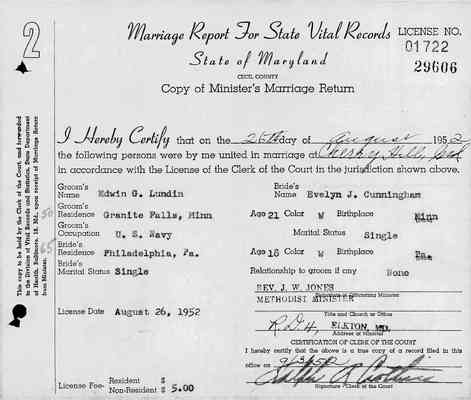 2
Marriage Report For State Vital Records LICENSE NO.
01722
State of Maryland
29606
CECIL COUNTY
Copy of Minister's Marriage Return
I Hereby Certify that on the 26th day of August 1952
the following persons were by me united in marriage at Cherry Hill,
in accordance with the License of the Clerk of the Court in the jurisdiction shown above.
Groom's Name Edwin G. Lundin Bride's Name Evelyn J. Cunningham
Groom's Residence Granite Falls, Minn Age 21 Color W Birthplace Minn
Groom's Occupation U. S. Navy Marital Status Single
Bride's Residence Philadelphia, Pa. Age 18 Color W Birthplace Pa.
Bride's Marital Status Single Relationship to groom if any None
REV. J. W. JONES
METHODIST MINISTER Signature of Officiating Minister
Title and Church or Office
License Date August 26, 1952
R.D.4, ELKTON, MD.
Address of Minister
CERTIFICATION OF CLERK OF THE COURT
I hereby certify that the above is a true copy of a record filed in this
office on
License Fee- Resident $
Non-Resident $ 5.00
Signature Clerk of the Court
This copy to be held by the Clerk of the Court, and forwarded
to the Division of Vital Records and Statistics, State Department
of Health, Baltimore, 18, Md., upon receipt of Marriage Return
from Minister.
50
65